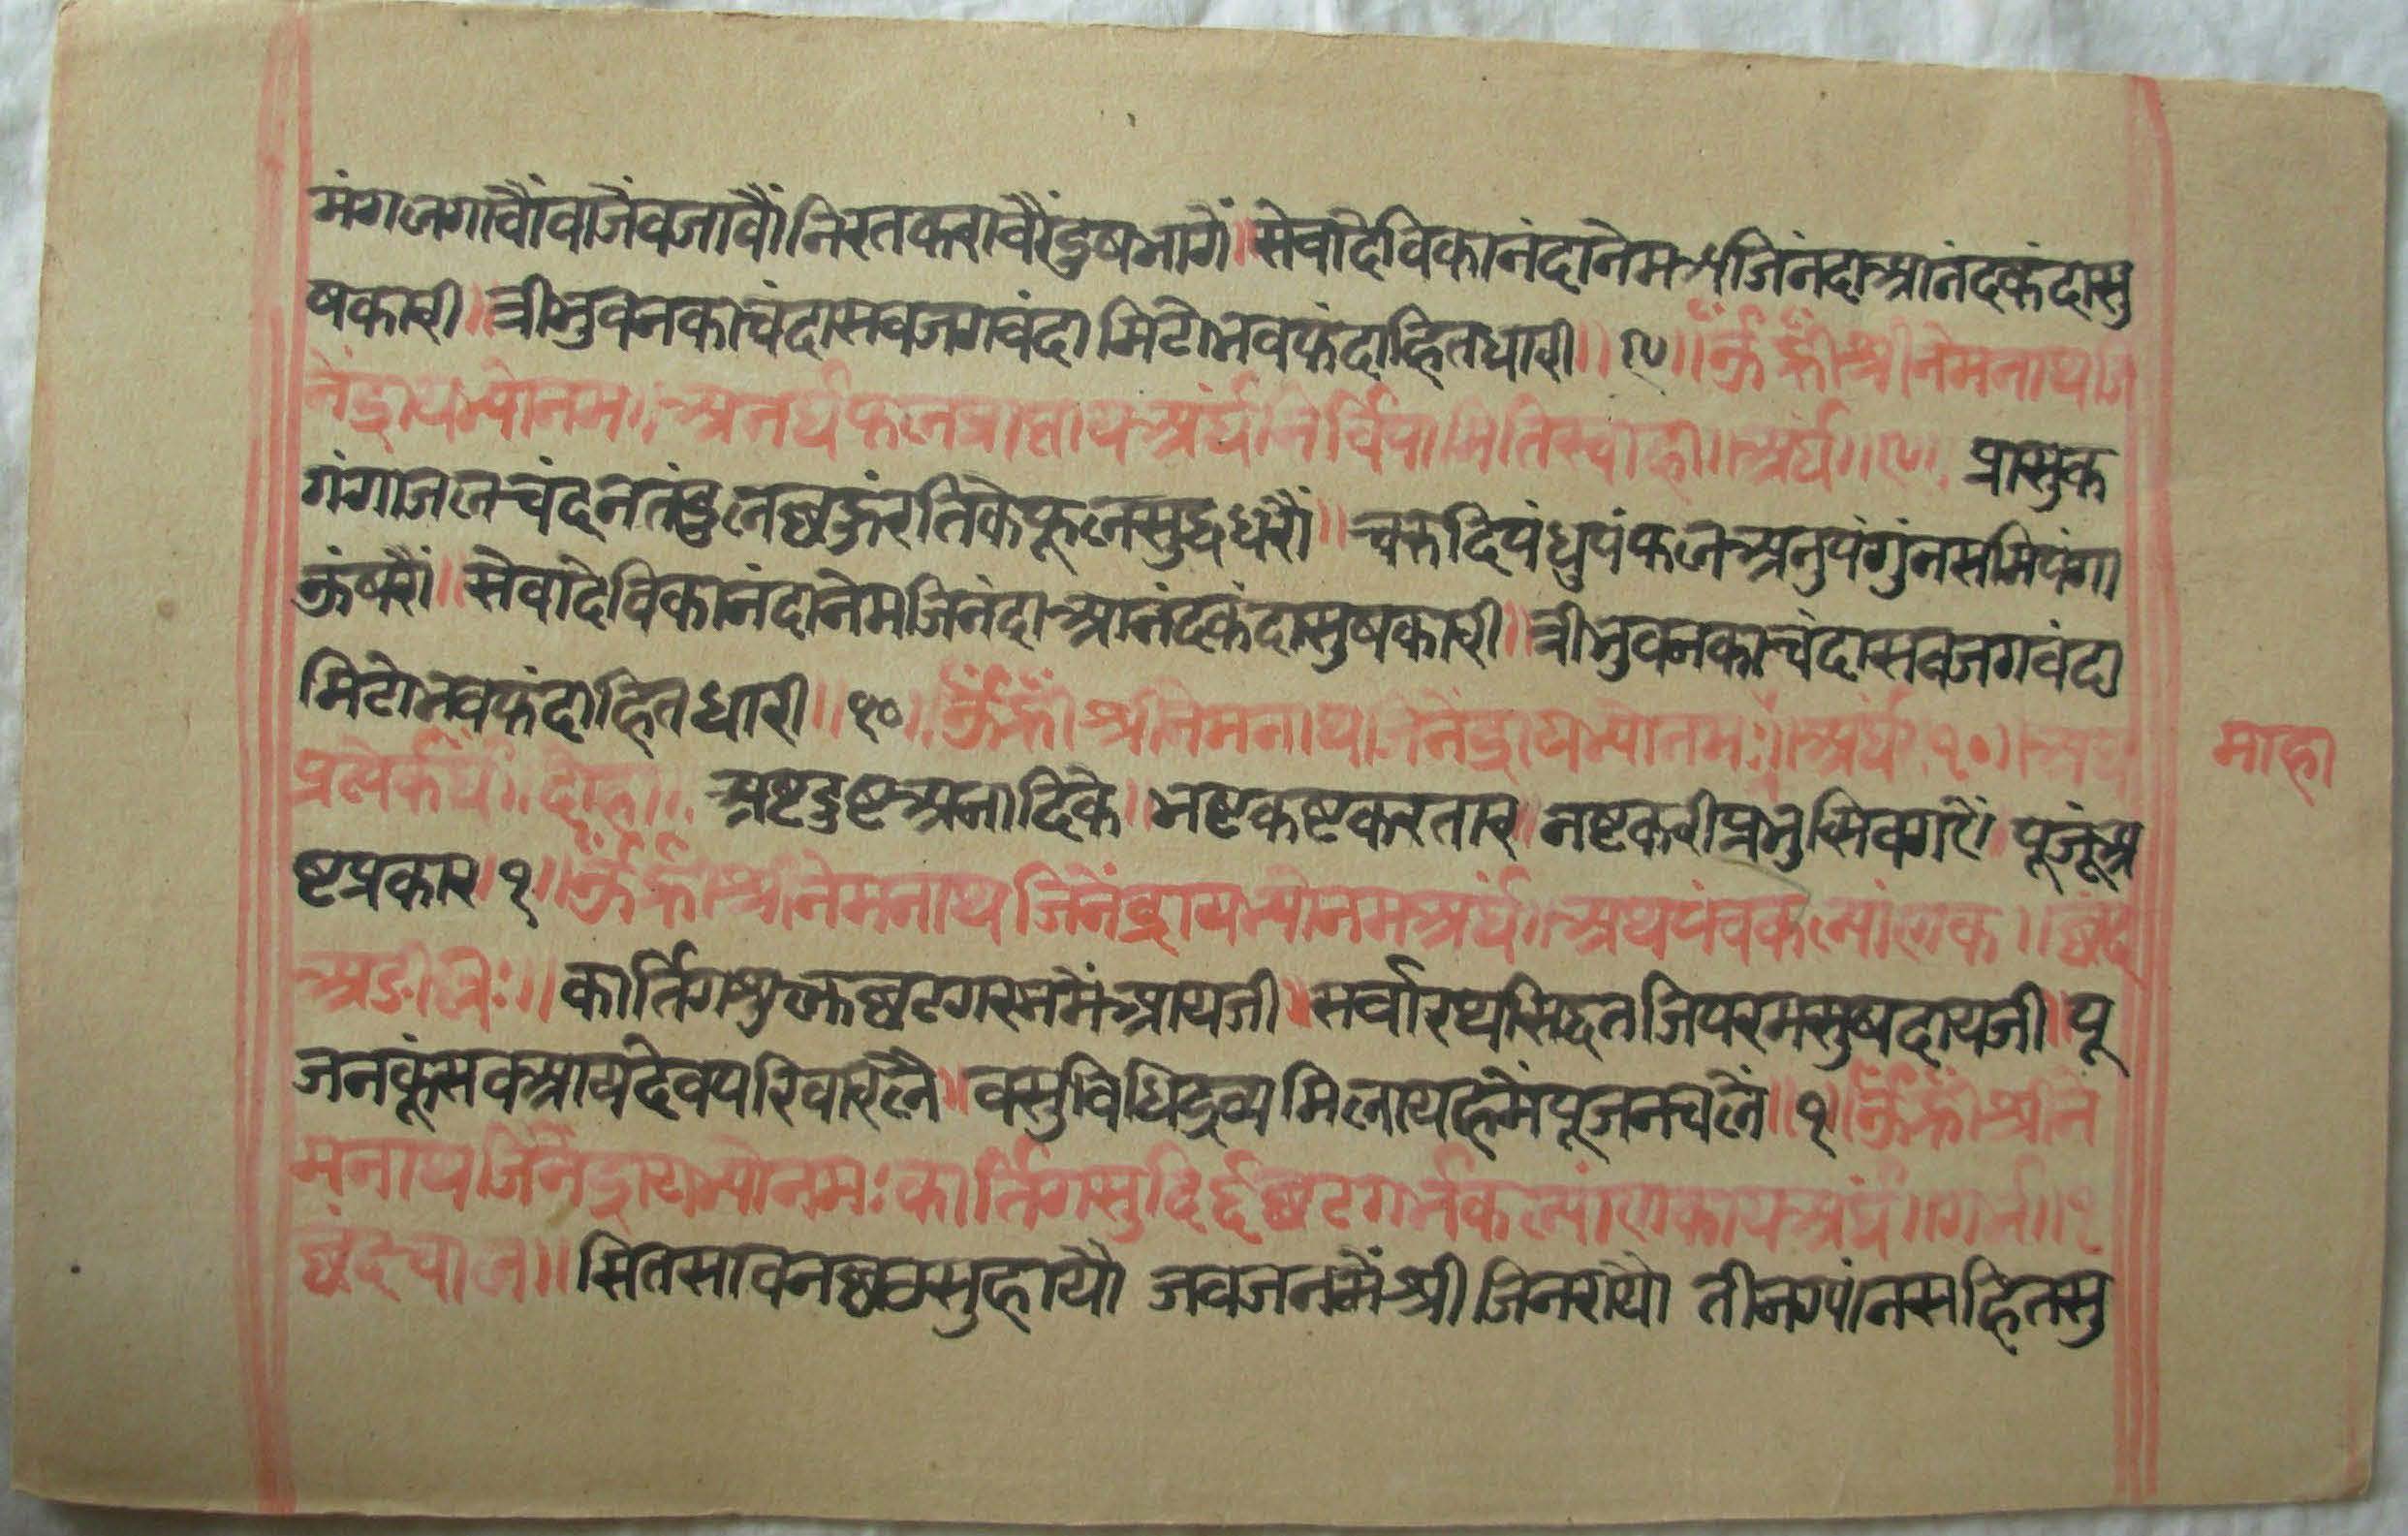 मंगलगावौंवाजैंवजावौं।निरतकरावैंरंडुषभागें॥सेवादेविकानंदानेमश्रजिनंदाआनंदकंदासु
षकारी॥त्रीभुवनकाचंदासवजगवंदामिटोभवफंदाहितधारी॥९॥ॐह्रींश्रीनेमनाथजि
नेंद्रायभ्योनम॥अनर्घफलप्राप्तायअर्घंनिर्विपामितिस्वाहा॥अर्घं॥९॥प्रासुक
गंगाजलचंदनतंडुलेछङ्गंरतिकेफूलेसुद्धधरौं॥चरुदिपंधुपंफलअनुपंगुंनसमिपंगा
ऊंषरौं॥सेवादेविकानंदानेमजिनंदाआनंदकंदासुषकारी॥त्रीभुवनकाचंदासवजगवंदा
मिटोभवफंदाहितधारी॥१०॥ॐह्रींश्रीनेमनाथजिनेंद्रायभ्योनमः॥अर्घं॥१०॥अथ
प्रत्येकर्घं॥दोहा॥अष्टदुष्टअनादिके।भष्टकष्टकरतार।नष्टकरीप्रभुसिवगऐ।पूजूंअ
ष्टप्रकार॥१॥ॐह्रींश्रीनेमनाथजिनेंद्रायभ्योनमअर्घं॥अथपंचकल्यांणक॥छंद
अडील्लः॥कार्तिगशुक्लछटगरभमैंआयजी॥सर्वारथसिद्धतजिपरमसुषदायजी॥पू
जनकूंसक्रआयदेवपरिवारलै॥वसुविधिद्रव्यमिलायहमैंपूजनचलें॥१॥ॐह्रींश्रीने
मनाथजिनेंद्रायभ्योनमःकार्तिगसुदिछटगर्भकल्यांणकायअर्घं॥गर्भ॥१
छंदचाल॥सितसावनछठसुहायौ जवजनमैंश्रीजिनरायौ तीनग्यांनसहितसु
माहा